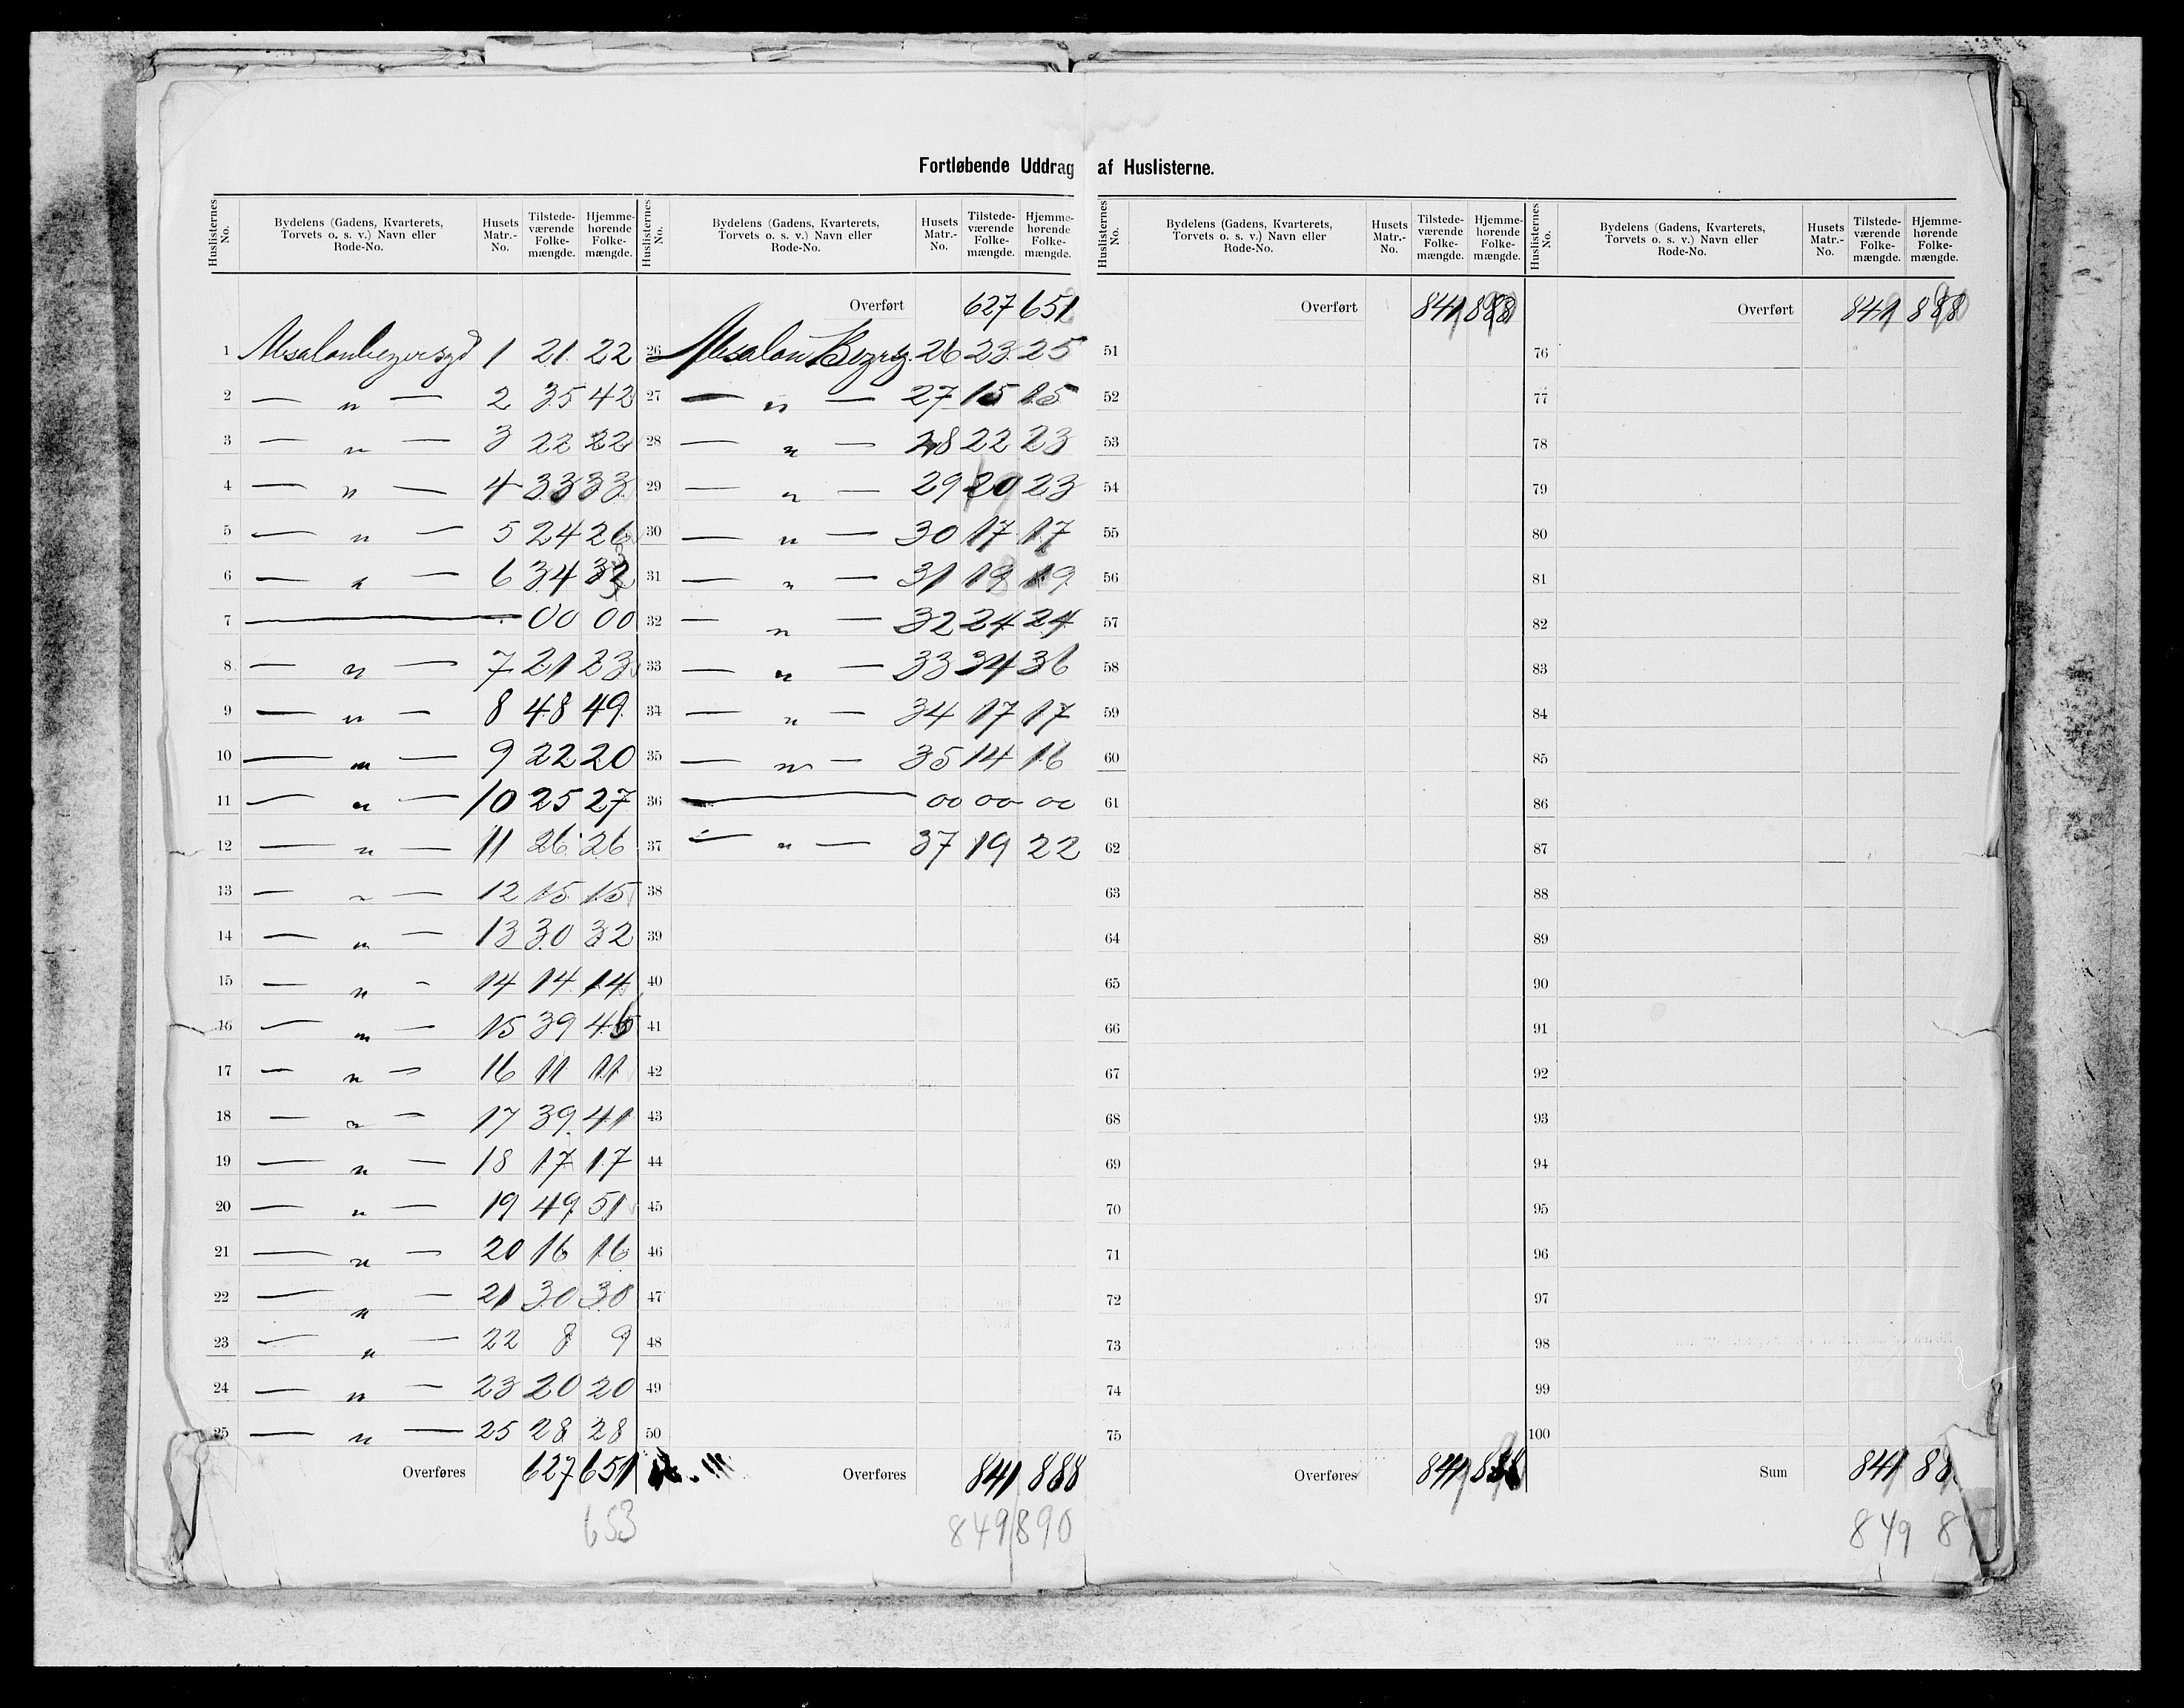 Fortløbende Uddrag af Huslisterne.
Huslisternes No. | Bydelens (Gadens, Kvarterets, Torvets o. s. v.) Navn eller Rode-No. | Husets Matr.-No. | Tilstede-værende Folke-mængde. | Hjemme-hørende Folke-mængde.
1 | 1 | 21 | 22
2 — " — 2 | 35 | 42
3 — " — 3 | 22 | 22
4 — " — 4 | 33 | 33
5 — " — 5 | 24 | 26
6 — " — 6 | 34
7 — 00 | 00
8 — " — 7 | 21 | 23
9 — " — 8 | 48 | 49
10 — " — 9 | 22 | 20
11 — " — 10 | 25 | 27
12 — " — 11 | 26 | 26
13 — " — 12 | 15 | 15
14 — " — 13 | 30 | 32
15 — " — 14 | 14 | 14
16 — " — 15 | 39
17 — " — 16 | 11 | 11
18 — " — 17 | 39 | 41
19 — " — 18 | 17 | 17
20 — " — 19 | 49 | 51
21 — " — 20 | 16 | 16
22 — " — 21 | 30 | 30
23 — " — 22 | 8 | 9
24 — " — 23 | 20 | 20
25 — " — 25 | 28 | 28
Overføres 627 | 651
653
Huslisternes No. | Bydelens (Gadens, Kvarterets, Torvets o. s. v.) Navn eller Rode-No. | Husets Matr.-No. | Tilstede-værende Folke-mængde. | Hjemme-hørende Folke-mængde.
Overført 627 | 651
26 Absalon | 26 | 23 | 25
27 — " — 27 | 15 | 15
28 — " — 28 | 22 | 23
29 — " — 29 | 20 | 23
30 — " — 30 | 17 | 17
31 — " — 31 | 18 | 19
32 — " — 32 | 24 | 24
33 — " — 33 | 34 | 36
34 — " — 34 | 17 | 17
35 — " — 35 | 14 | 16
36 — 00 | 00 | 00
37 — " — 37 | 19 | 22
38
39
40
41
42
43
44
45
46
47
48
49
50
Overføres 841 | 888
849 | 890
Huslisternes No. | Bydelens (Gadens, Kvarterets, Torvets o. s. v.) Navn eller Rode-No. | Husets Matr.-No. | Tilstede-værende Folke-mængde. | Hjemme-hørende Folke-mængde.
Overført 841 | 888
51
52
53
54
55
56
57
58
59
60
61
62
63
64
65
66
67
68
69
70
71
72
73
74
75
Overføres 841 | 888
Huslisternes No. | Bydelens (Gadens, Kvarterets, Torvets o. s. v.) Navn eller Rode-No. | Husets Matr.-No. | Tilstede-værende Folke-mængde. | Hjemme-hørende Folke-mængde.
Overført 841 | 888
76
77
78
79
80
81
82
83
84
85
86
87
88
89
90
91
92
93
94
95
96
97
98
99
100
Sum 841 | 88
849 | 8